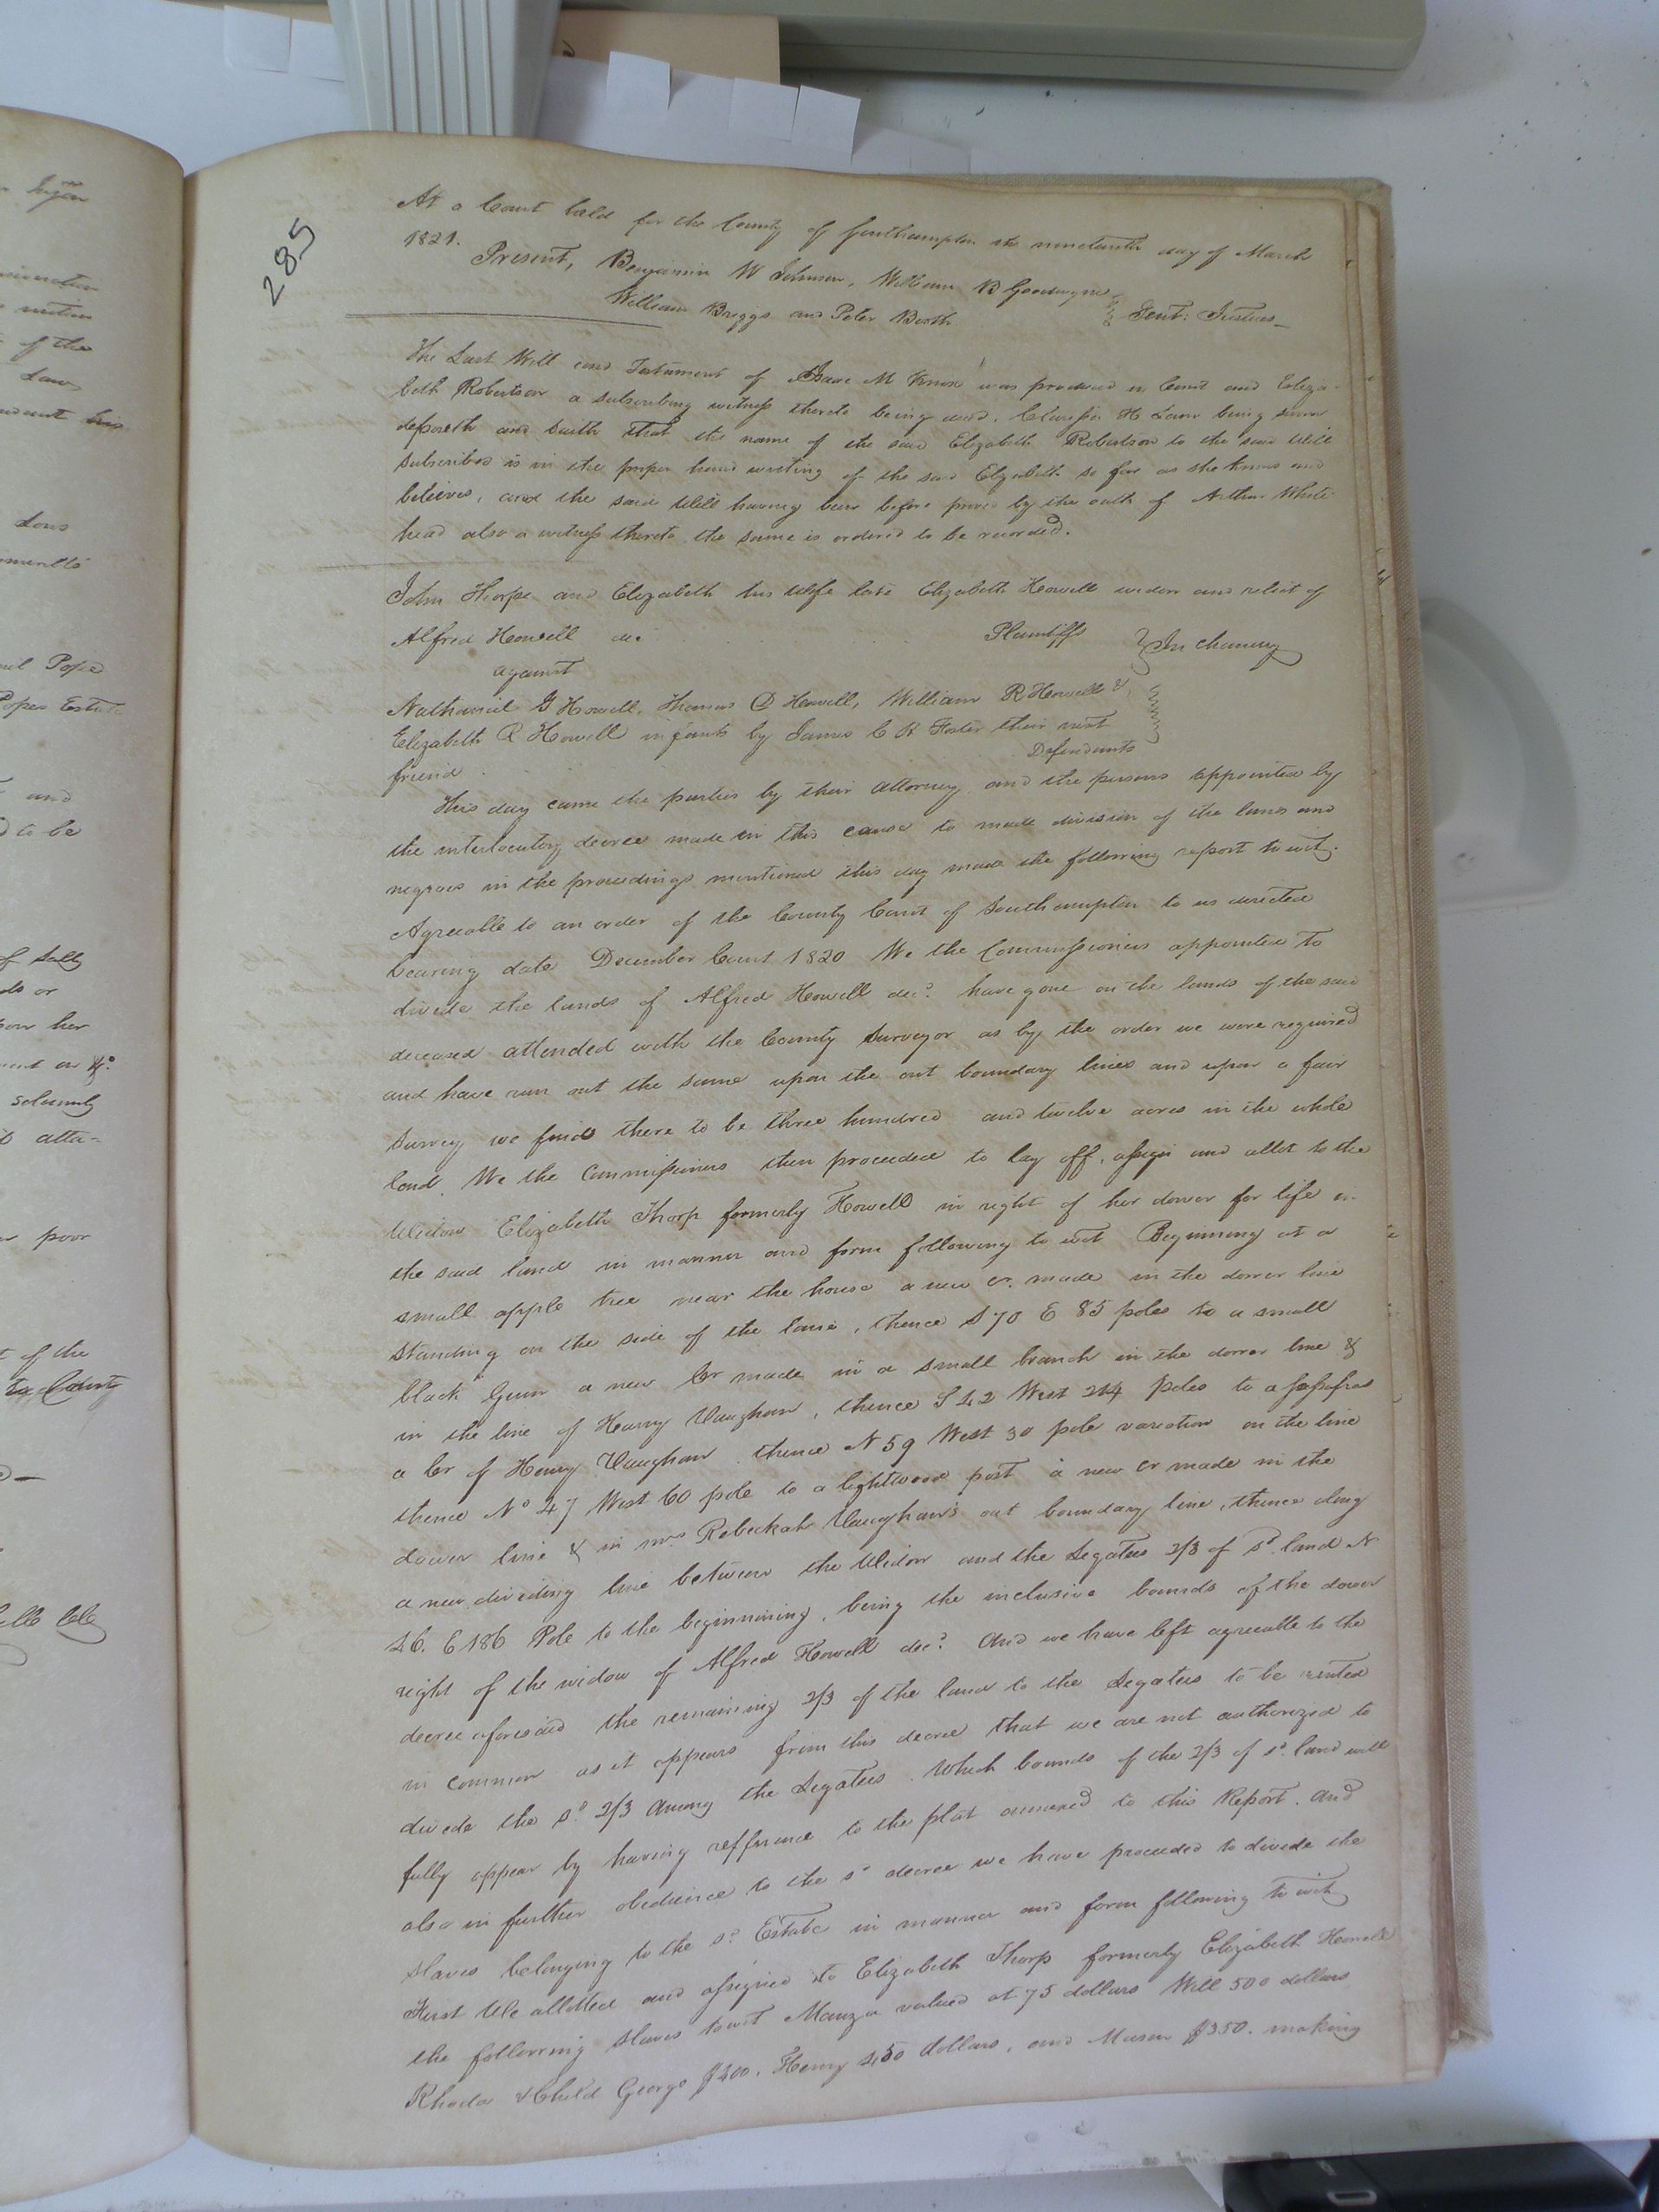 285
At a Court held for the County of Southampton the nineteenth day of March
1821.
Present, Benjamin W Johnson, William B Goodwyn
William Briggs and Peter Booth
Gent: Justices
The Last Will and Testament of Isaac M was produced in Court and Eliza-
beth Robertson a subscribing witness thereto being dead, Clarissa H Law being sworn
deposeth and saith that the name of the said Elizabeth Robertson to the said Will
subscribed is in the proper hand writing of the said Elizabeth so far as she knows and
believes, and the said Will having been before proved by the oath of Arthur White
head also a witness thereto, the same is ordered to be recorded.
John Thorpe and Elizabeth his Wife late Elizabeth Howell widow and relict of
Alfred Howell dec Plaintiffs
In Chancery
against
Nathaniel G Howell, Thomas D Howell, William R Howell &
Elizabeth R Howell infants by James C R Foster their next
friend Defendants
This day came the parties by their attorney and the persons appointed by
the interlocutory decree made in this cause to made division of the lands and
negroes in the proceedings mentioned this day made the following report towit.
Agreeable to an order of the County Court of Southampton to us directed
bearing date December Court 1820 We the Commissioners appointed to
divide the lands of Alfred Howell decd. have gone on the lands of the said
deceased attended with the County Surveyor as by the order we were required
and have run out the same upon the out boundary lines and upon a fair
Survey we find there to be three hundred and twelve acres in the whole
land. We the Commissioners then proceeded to lay off, assign and allot to the
Widow Elizabeth Thorp formerly Howell in right of her dower for life in
the said land in manner and form following to wit Beginning at a
small apple tree near the house a new cr. made in the dower line
standing on the side of the lane, thence S 70 E 85 poles to a small
black Gum a new Cr made in a small branch in the dower line &
in the line of Henry Vaughan, thence S 42 West 214 poles to a sassafras
a Cr of Henry Vaughan thence N 59 West 30 pole variation on the line
thence No 47 West 60 pole to a lightwood post a new cr made in the
dower line & in mrs Rebeckah Vaughan's out boundary line, thence along
a new dividing line between the Widow and the Legatees 2/3 of sd. land N
46. E 186 Pole to the beginnining, being the inclusive bounds of the dower
right of the widow of Alfred Howell decd. And we have left agreeable to the
decree aforesaid the remaining 2/3 of the land to the Legatees to be rented
in common as it appears from this decree that we are not authorized to
divide the sd. 2/3 among the Legatees. Which bounds of the 2/3 of sd. land will
fully appear by having refference to the plat annexed to this Report. And
also in further obedience to the sd decree we have proceeded to divide the
slaves belonging to the sd. Estate in manner and form following to wit
First We allotted and assigned to Elizabeth Thorp formerly Elizabeth Howell
the following slaves towit Manza valued at 75 dollars Will 500 dollars
Rhoda & Child George $400. Henry 450 dollars, and Mason $350. making